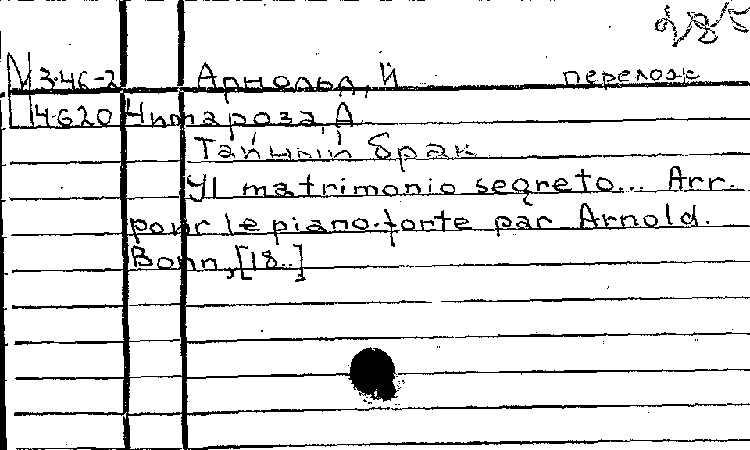 285
М 3.46-2 Арнольд, И перелож
Ц 4620 Чимароза, Д
Тайный брак
Il matrimonio segreto... Arr.
pour le piano-forte par Arnold.
Bonn, [18..]